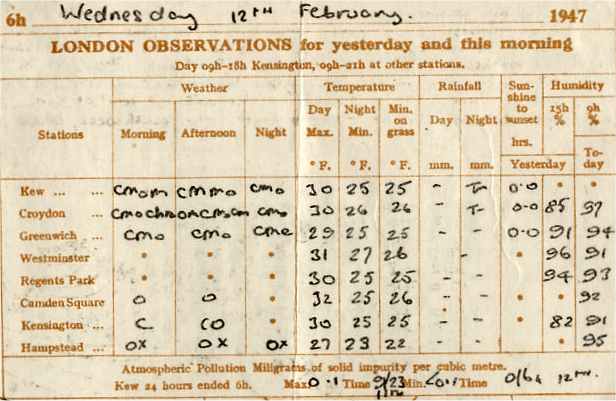 6h Wednesday 12TH February. 1947
LONDON OBSERVATIONS for yesterday and this morning
Day 09h-18h Kensington, 09h-21h at other stations.
Weather Temperature Rainfall Sun-shine to sunset hrs. Humidity
Stations Morning Afternoon Night Day Max. °F. Night Min. °F. Min. on grass °F. Day mm. Night mm. Yesterday 15h % 9h % To-day
Kew ... ... cmom cmmo cmo 30 25 25 - Tr 0.0 • •
Croydon ... 30 26 26 - Tr 0.0 85 97
Greenwich ... cmo cmo cme 29 25 25 - - 0.0 91 94
Westminster • • • 31 27 26 - • 96 91
Regents Park • • • 30 25 25 - - • 94 93
Camden Square o o • 32 25 26 - - • • 92
Kensington ... c co • 30 25 25 - - • 82 91
Hampstead ... ox ox ox 27 23 22 - - • • 95
Atmospheric Pollution Milligrams of solid impurity per cubic metre.
Kew 24 hours ended 6h. Max. 0.1 Time 9/23 11TH Min. <0.1 Time 0/6h 12TH.